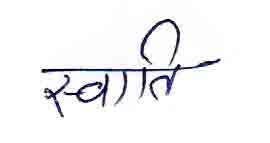 स्वाति